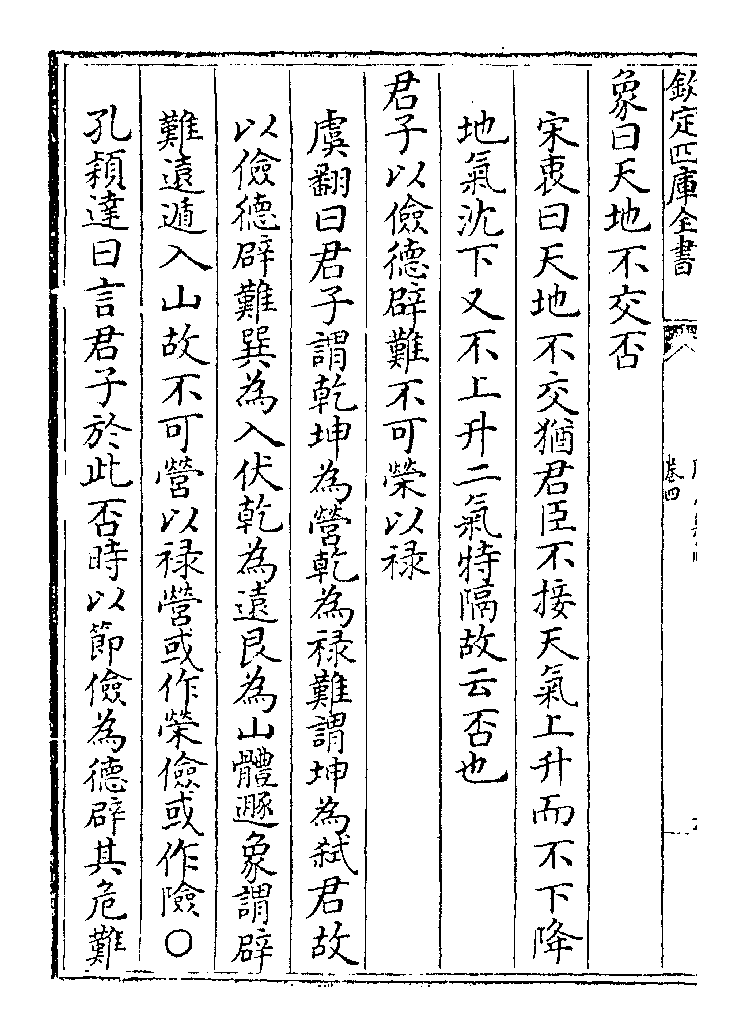 欽定四庫全書
卷四
象曰天地不交否
宋衷曰天地不交猶君臣不接天氣上升而不下降
地氣沈下又不上升二氣特隔故云否也
君子以儉德辟難不可榮以祿
虞翻曰君子謂乾坤為營乾為祿難謂坤為弑君故
以儉德辟難巽為入伏乾為遠艮為山體遯象謂辟
難遠遁入山故不可營以祿營或作榮儉或作險〇
孔穎達曰言君子於此否時以節儉為德辟其危難